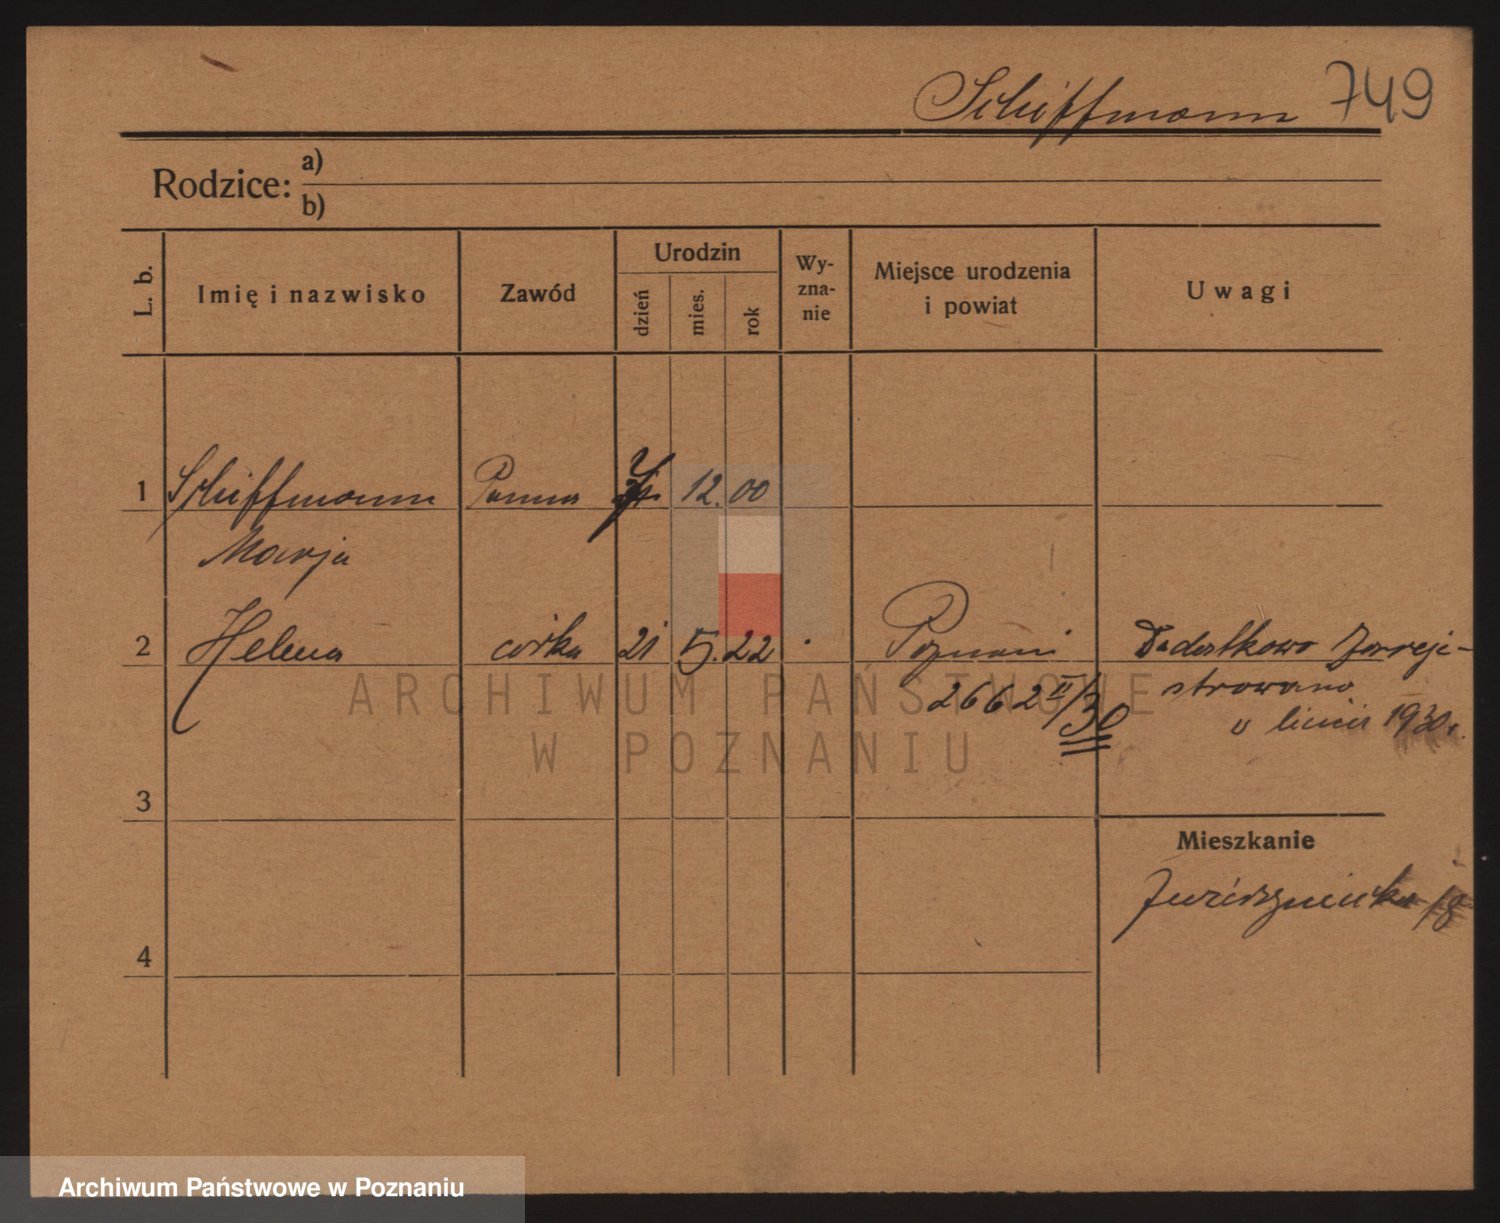 Schiffmann 749
Rodzice: a)
b)
L. b. Imię i nazwisko Zawód Urodzin dzień mies. rok Wy-zna-nie Miejsce urodzenia i powiat Uwagi
1 Schiffmann Panna 12. 00
Marja
2 Helena córka 21 5. 22 Poznań Dodatkowo zareje-
2662 II/30 strowano
w lipcu 1930 r.
3
Mieszkanie
/8
4
ARCHIWUM PAŃSTWOWE
W POZNANIU
Archiwum Państwowe w Poznaniu